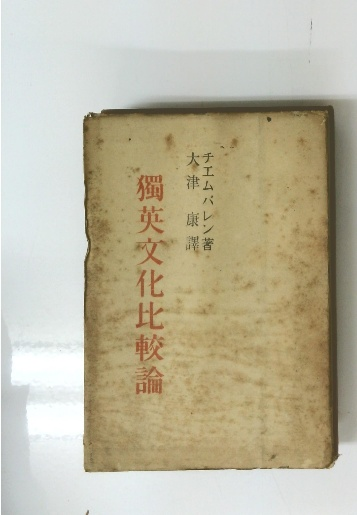 チエムバレン著
大津康譯
獨英文化比較論